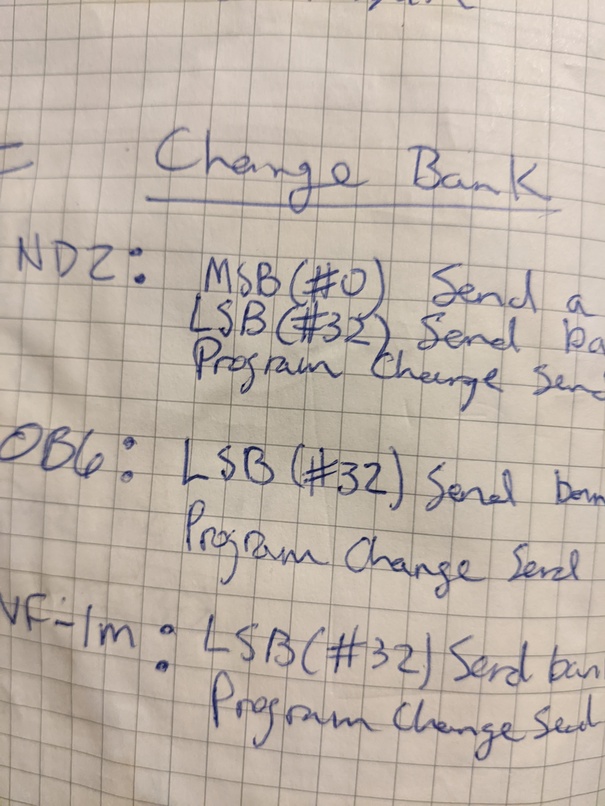 = Change Bank
ND2: MSB (#0) Send a
LSB (#32) Send ba
Program Change Send
OB6: LSB (#32) Send ban
Program Change Send
VF-1m: LSB (#32) Send ban
Program Change Send